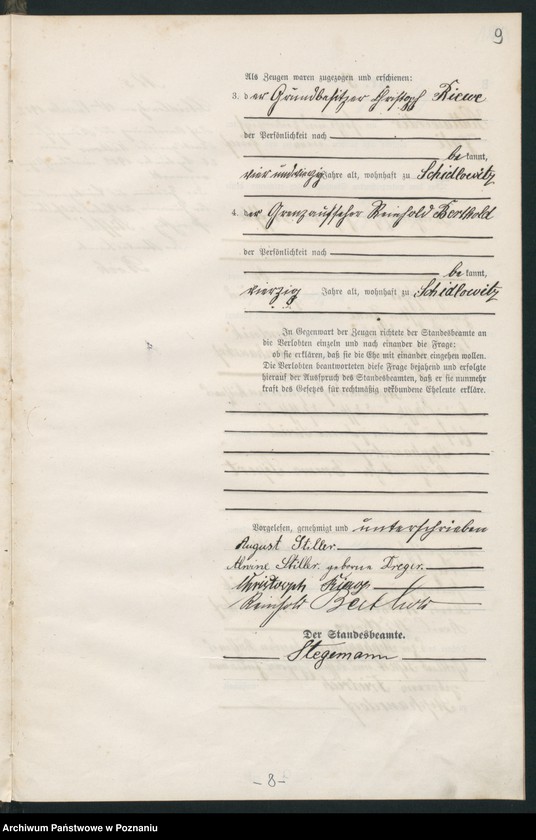 9
Als Zeugen waren zugezogen und erschienen:
3. der Grundbesitzer Christoph Kiewe
der Persönlichkeit nach
bekannt,
vierundvierzig Jahre alt, wohnhaft zu Schidlowitz
4. der Grenzaufseher Reinhold Berthold
der Persönlichkeit nach
bekannt,
vierzig Jahre alt, wohnhaft zu Schidlowitz
In Gegenwart der Zeugen richtete der Standesbeamte an
die Verlobten einzeln und nach einander die Frage:
ob sie erklären, daß sie die Ehe mit einander eingehen wollen.
Die Verlobten beantworteten diese Frage bejahend und erfolgte
hierauf der Ausspruch des Standesbeamten, daß er sie nunmehr
kraft des Gesetzes für rechtmäßig verbundene Eheleute erkläre.
Vorgelesen, genehmigt und unterschrieben
August Stiller
Stiller geborne Dreger
Christoph
Reinhold Berthold
Der Standesbeamte.
Stegemann
- 8 -
Archiwum Państwowe w Poznaniu